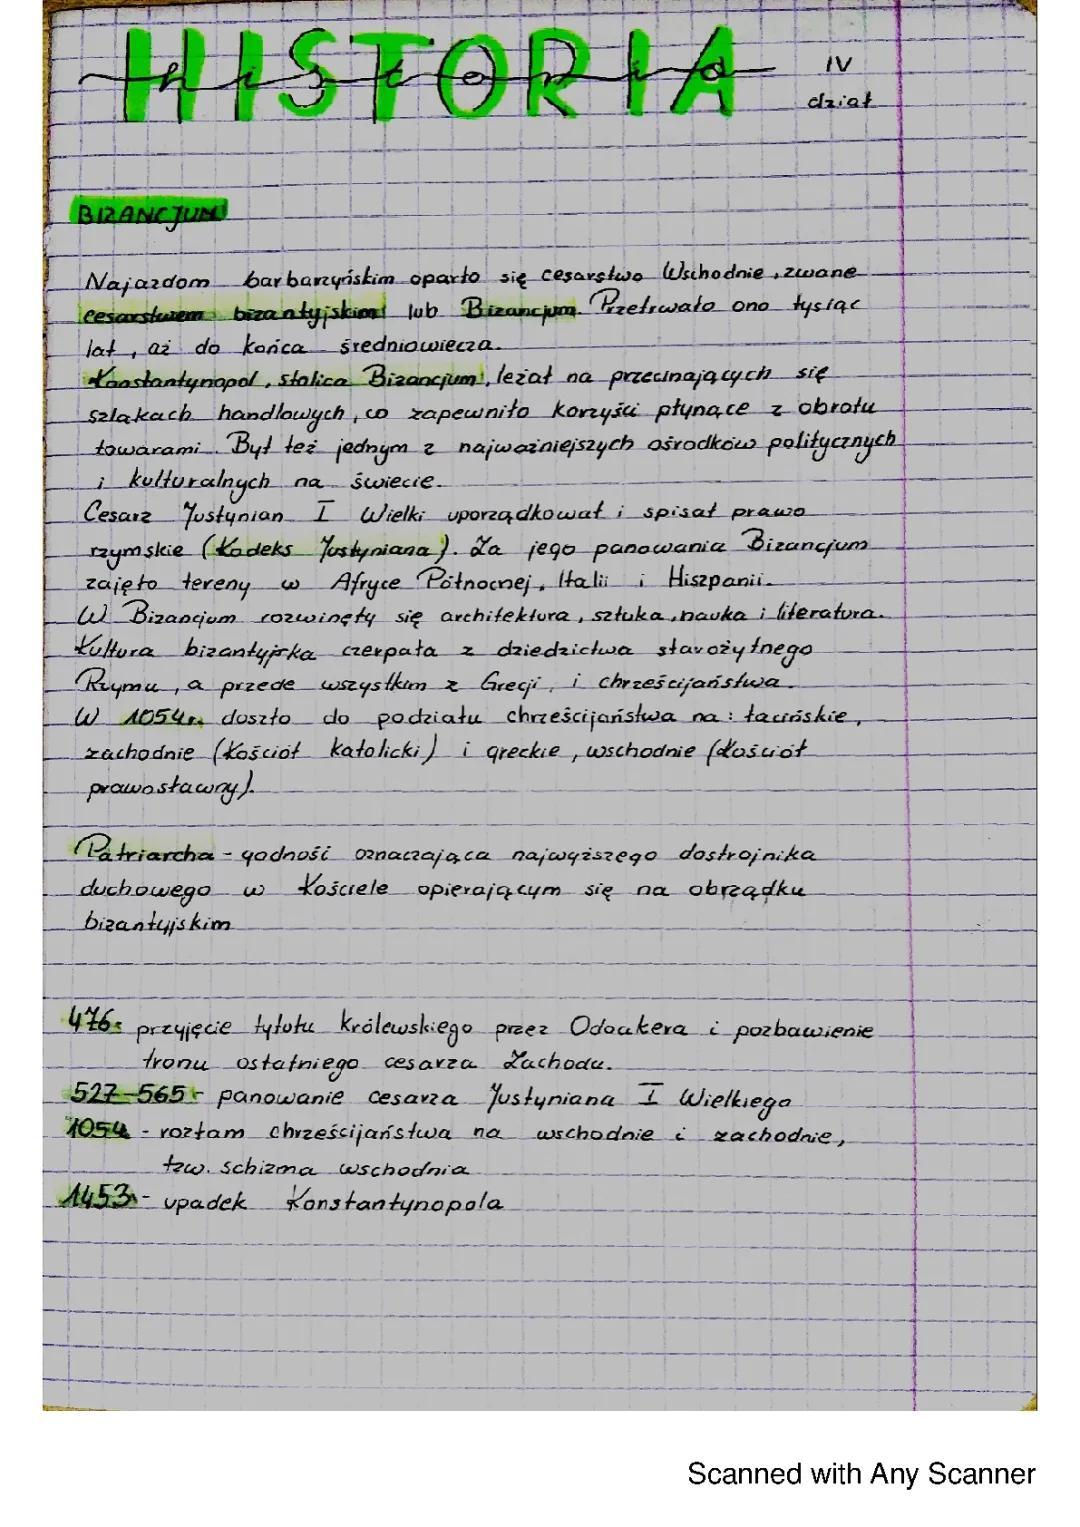 HISTORIA
historia
IV
dział
BIZANCJUM
Najazdom barbarzyńskim oparło się cesarstwo Wschodnie, zwane
cesarstwem bizantyjskim lub Bizancjum. Przetrwało ono tysiąc
lat, aż do końca średniowiecza.
Konstantynopol, stolica Bizancjum, leżał na przecinających się
szlakach handlowych, co zapewniło korzyści płynące z obrotu
towarami. Był też jednym z najważniejszych ośrodków politycznych
i kulturalnych na świecie.
Cesarz Justynian I Wielki uporządkował i spisał prawo
rzymskie (Kodeks Justyniana). Za jego panowania Bizancjum
zajęto tereny w Afryce Północnej, Italii i Hiszpanii.
W Bizancjum rozwinęty się architektura, sztuka, nauka i literatura.
Kultura bizantyjska czerpała z dziedzictwa starożytnego
Rzymu, a przede wszystkim z Grecji, i chrześcijaństwa.
W 1054r. doszło do podziału chrześcijaństwa na: łacińskie,
zachodnie (Kościół katolicki) i greckie, wschodnie (Kościół
prawosławny).
Patriarcha - godność oznaczająca najwyższego dostojnika
duchowego w Kościele opierającym się na obrządku
bizantyjskim
476- przyjęcie tytułu królewskiego przez Odoakera i pozbawienie
tronu ostatniego cesarza Zachodu.
527-565- panowanie cesarza Justyniana I Wielkiego
1054 - rozłam chrześcijaństwa na wschodnie i zachodnie,
tzw. schizma wschodnia
1453- upadek Konstantynopola
Scanned with Any Scanner